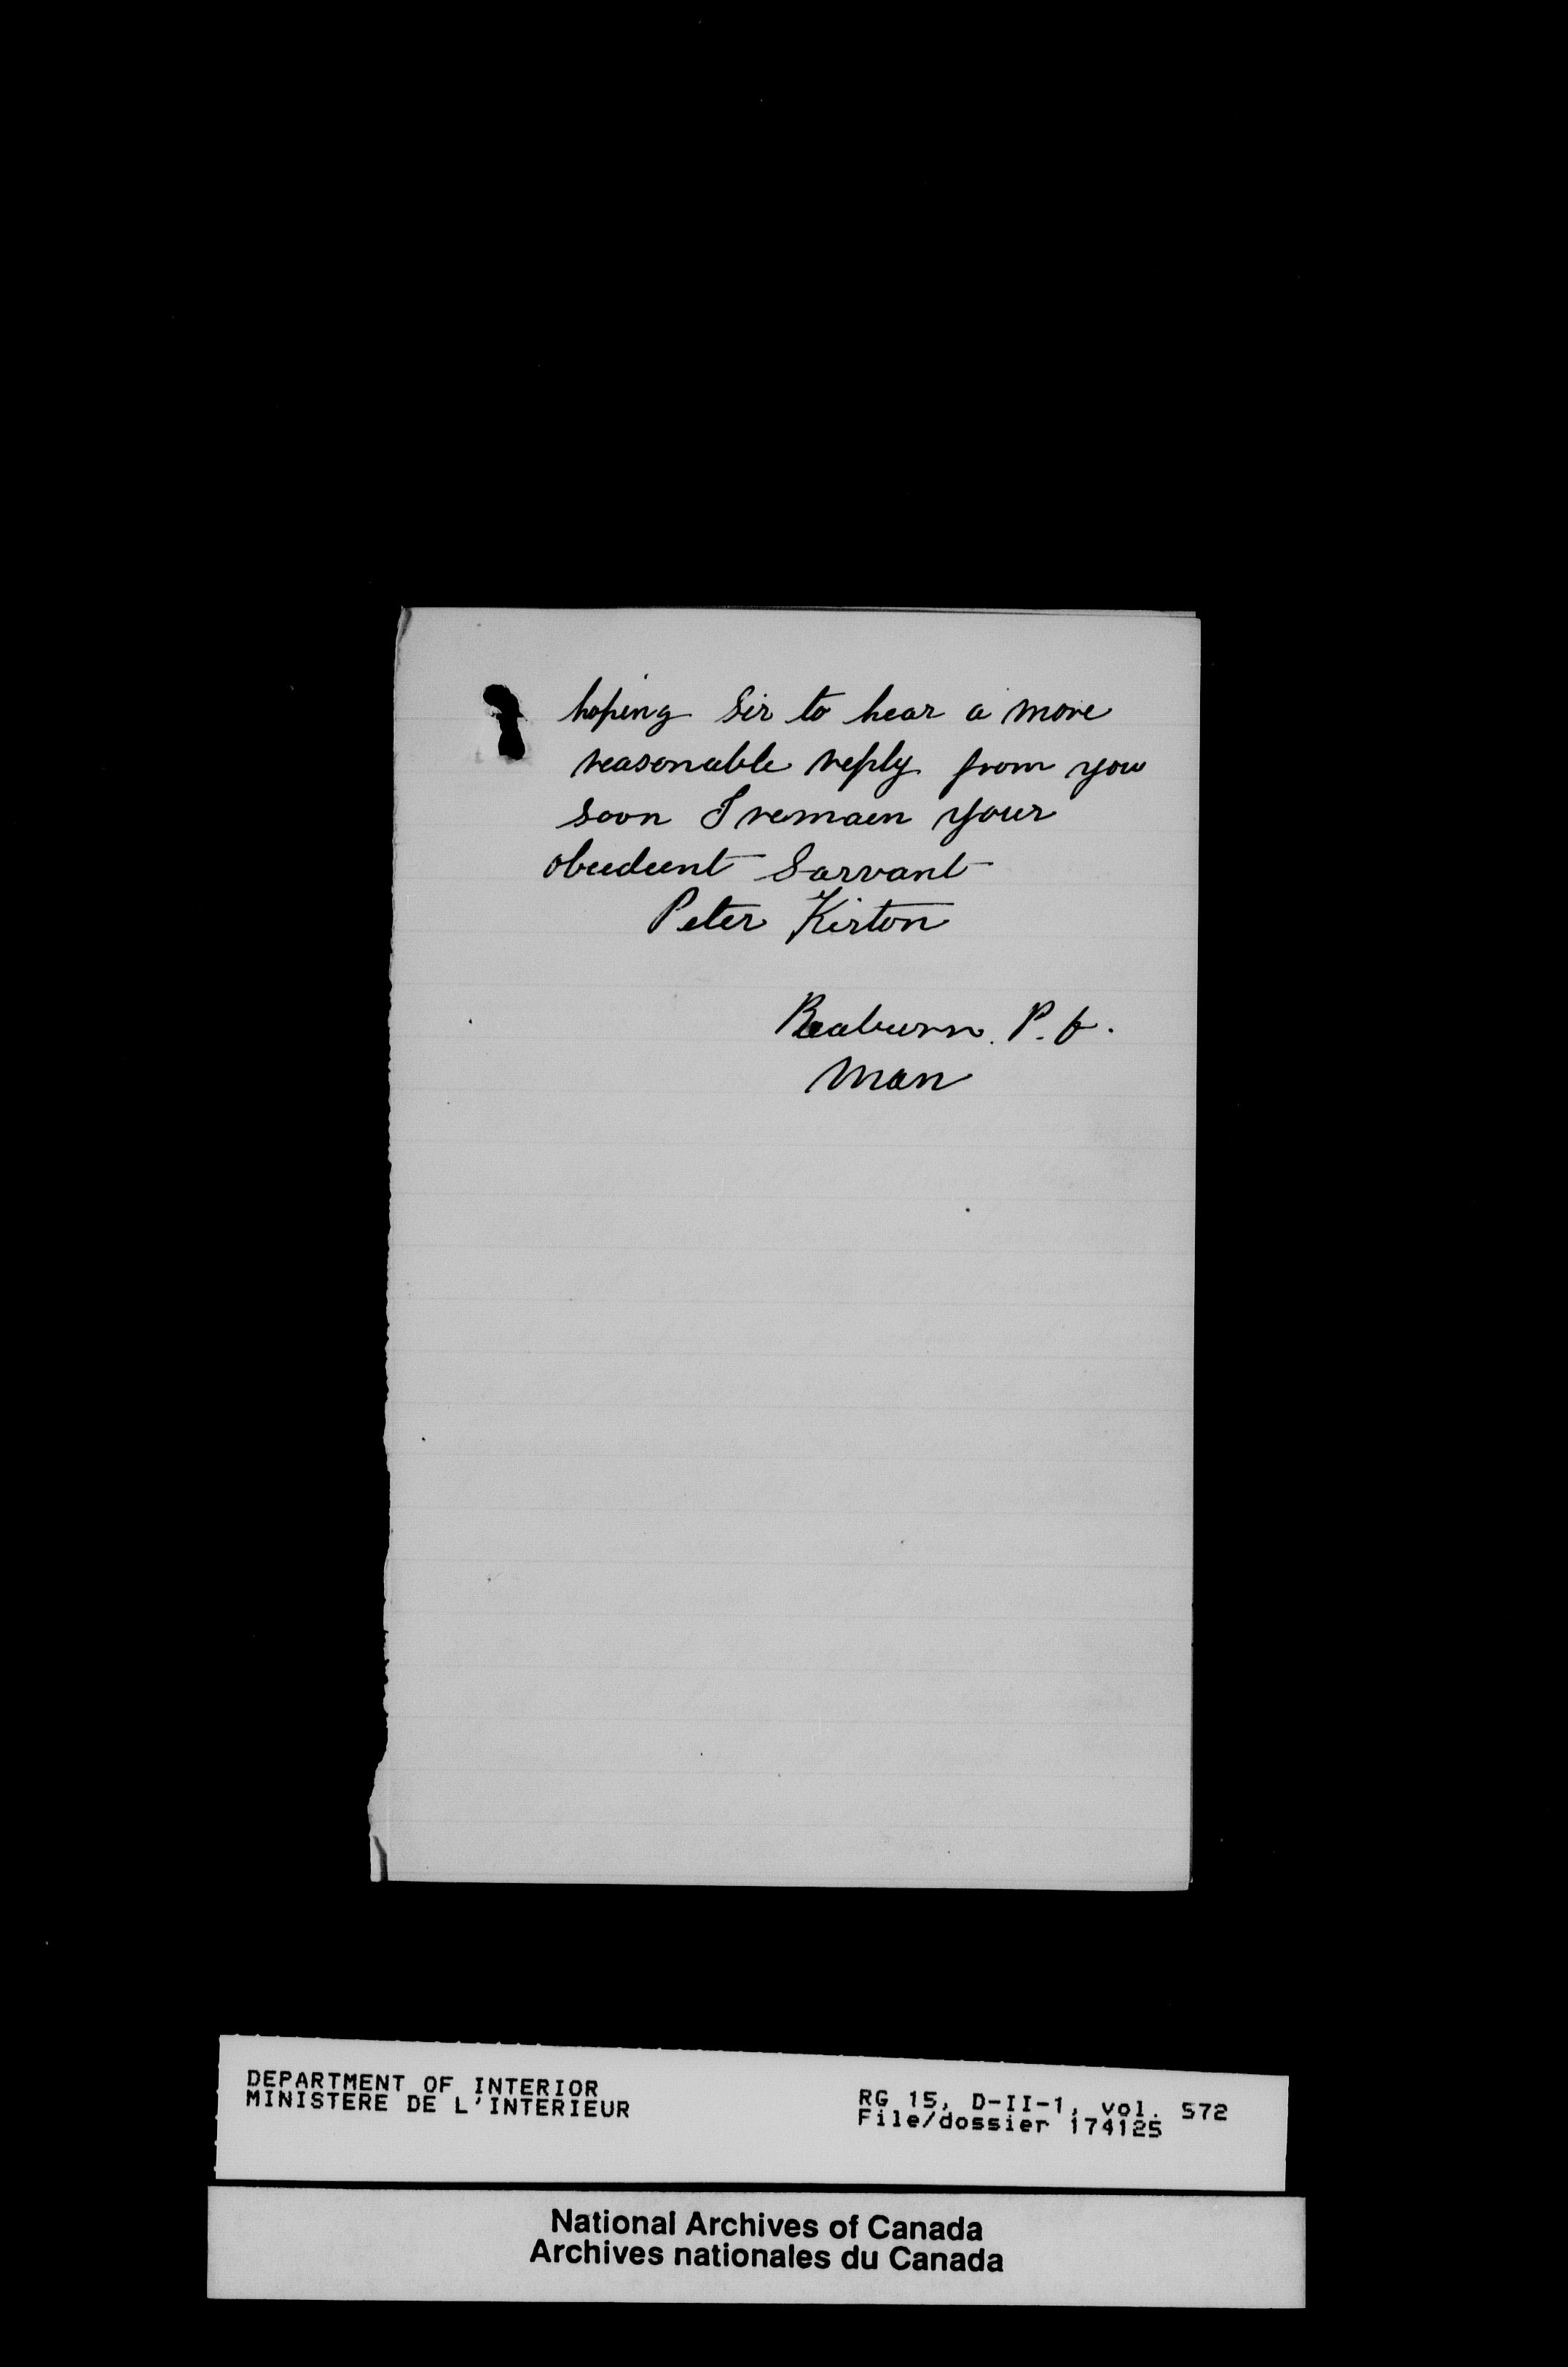 hoping Sir to hear a more
reasonable reply from you
soon I remain your
obeedeent Sarvant
Peter Kirton
Reaburn. P. o.
Man
DEPARTMENT OF INTERIOR
MINISTERE DE L'INTERIEUR
RG 15, D-II-1, vol. 572
File/dossier 174125
National Archives of Canada
Archives nationales du Canada